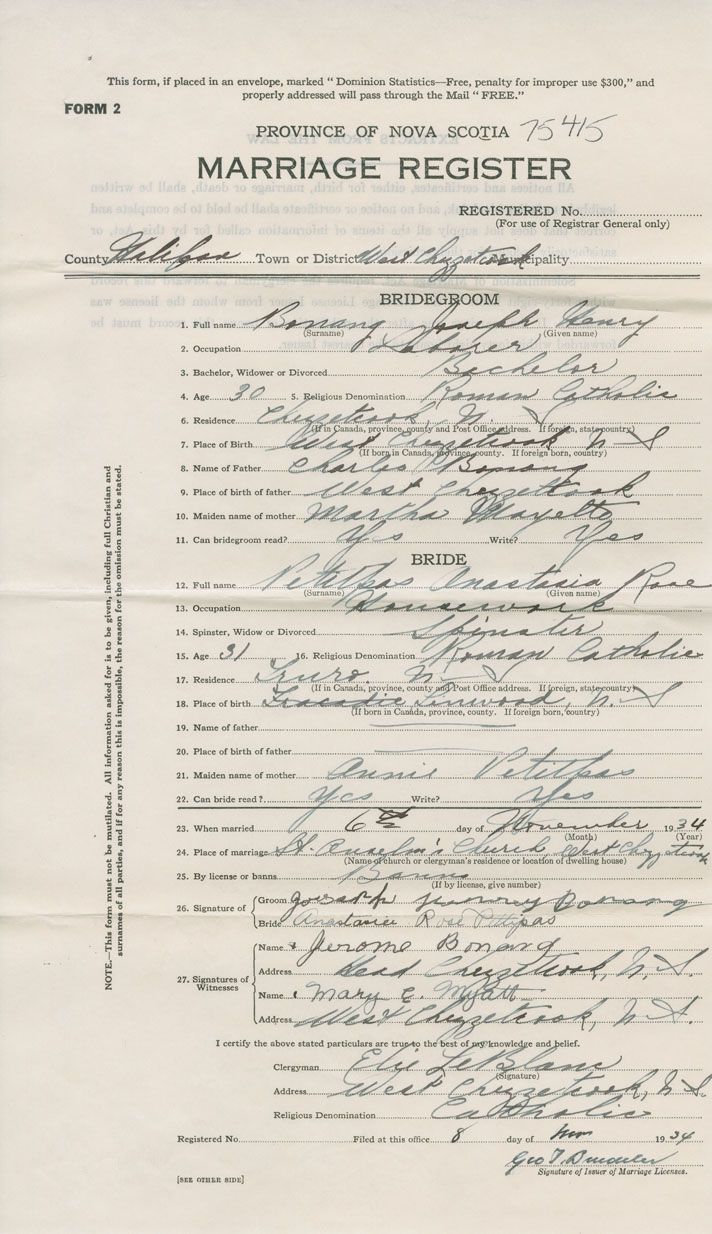 This form, if placed in an envelope, marked " Dominion Statistics—Free, penalty for improper use $300," and
properly addressed will pass through the Mail " FREE."
FORM 2
PROVINCE OF NOVA SCOTIA 75415
MARRIAGE REGISTER
REGISTERED No.
(For use of Registrar General only)
County Halifax Town or District West Chezzetcook Municipality
BRIDEGROOM
1. Full name Bonang Joseph Henry
(Surname) (Given name)
2. Occupation Laborer
3. Bachelor, Widower or Divorced Bachelor
4. Age 30 5. Religious Denomination Roman Catholic
6. Residence Chezzetcook, N. S
(If in Canada, province, county and Post Office address. If foreign, state country)
7. Place of Birth West Chezzetcook N S
(If born in Canada, province, county. If foreign born, country)
8. Name of Father Charles Bonang
9. Place of birth of father West Chezzetcook
10. Maiden name of mother Martha Mayette
11. Can bridegroom read? Yes Write? Yes
BRIDE
12. Full name Petitpas Anastasia Rose
(Surname) (Given name)
13. Occupation Housework
14. Spinster, Widow or Divorced Spinster
15. Age 31 16. Religious Denomination Roman Catholic
17. Residence Truro, N. S
(If in Canada, province, county and Post Office address. If foreign, state country)
18. Place of birth Tracadie Linwood, N. S
(If born in Canada, province, county. If foreign born, country)
19. Name of father
20. Place of birth of father
21. Maiden name of mother Annie Petitpas
22. Can bride read? Yes Write? Yes
23. When married 6th day of November 1934
(Month) (Year)
24. Place of marriage St. Anselm's Church, West Chezzetcook
(Name of church or clergyman's residence or location of dwelling house)
25. By license or banns Banns
(If by license, give number)
26. Signature of
Groom Joseph Henrey Bonang
Bride Anastasia Rose Pettipas
27. Signatures of
Witnesses
Name Jerome Bonang
Address Head Chezzetcook, N. S.
Name Mary E. Myatt
Address West Chezzetcook, N. S.
I certify the above stated particulars are true to the best of my knowledge and belief.
Clergyman Elie LeBlanc
(Signature)
Address West Chezzetcook, N. S.
Religious Denomination Catholic
Registered No. Filed at this office 8 day of Nov 1934
Geo T.
Signature of Issuer of Marriage Licenses.
[SEE OTHER SIDE]
NOTE.—This form must not be mutilated. All information asked for is to be given, including full Christian and
surnames of all parties, and if for any reason this is impossible, the reason for the omission must be stated.